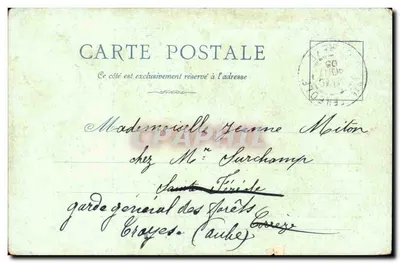 CARTE POSTALE
Ce côté est exclusivement réservé à l'adresse
Mademoiselle Jeanne Miton
chez Mr Surchamp
Sainte Féréole
garde général des forêts
Corrèze
Troyes (Aube)